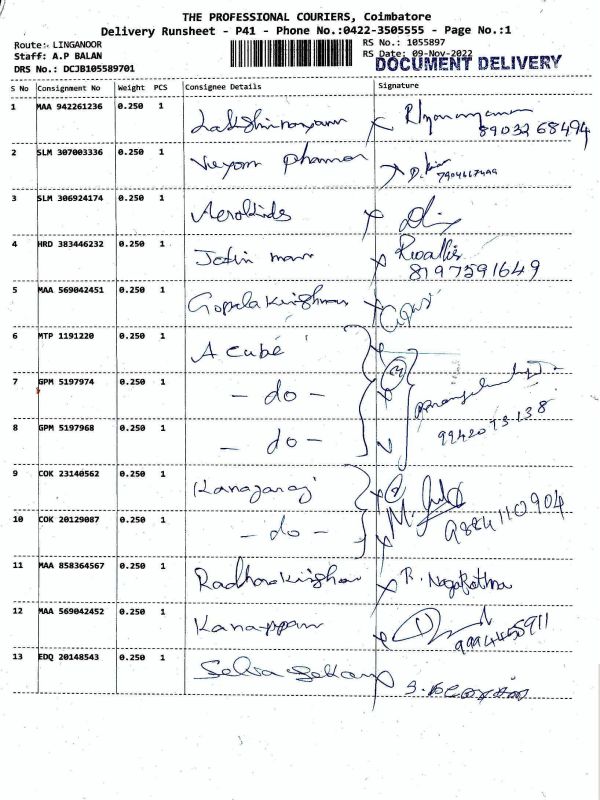 THE PROFESSIONAL COURIERS, Coimbatore
Delivery Runsheet - P41 - Phone No.:0422-3505555 - Page No.:1
Route: LINGANOOR RS No.: 1055897
Staff: A.P BALAN RS Date: 09-Nov-2022
DRS No.: DCJB105589701 DOCUMENT DELIVERY
S No Consignment No Weight PCS Consignee Details Signature
1 MAA 942261236 0.250 1
8903268494
2 SLM 307003336 0.250 1
3 SLM 306924174 0.250 1
4 HRD 383446232 0.250 1
8197591649
5 MAA 569042451 0.250 1 Gopalakrishnan
6 MTP 1191220 0.250 1 A cube
7 GPM 5197974 0.250 1 - do -
8 GPM 5197968 0.250 1 - do -
9942073138
9 COK 23140562 0.250 1 Kanagaraj
10 COK 20129087 0.250 1 - do -
9884110904
11 MAA 858364567 0.250 1 Radhakrishnan R. Nagarathna
12 MAA 569042452 0.250 1 Kanappan
13 EDQ 20148543 0.250 1 Selva Sekar